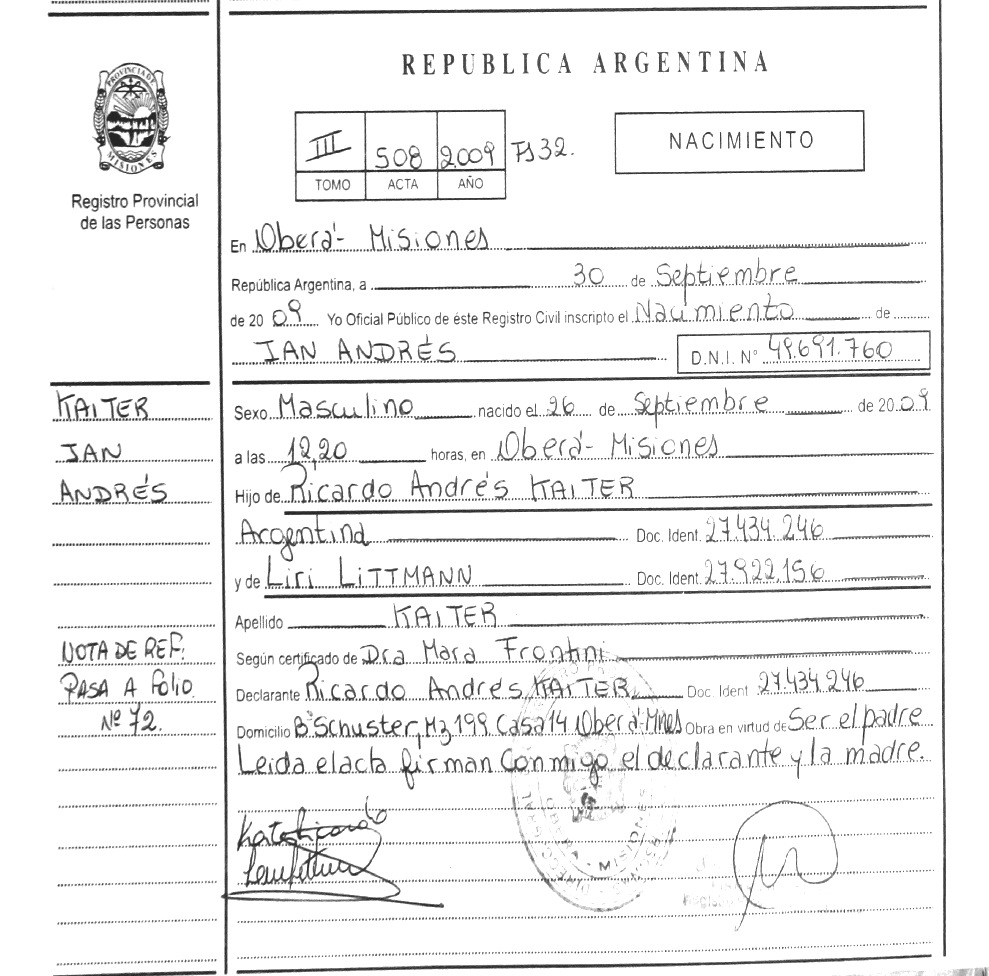 REPUBLICA ARGENTINA
PROVINCIA DE
MISIONES
Registro Provincial
de las Personas
III 508 2009 Fs 32.
TOMO ACTA AÑO
NACIMIENTO
En Oberá- Misiones
República Argentina, a 30 de Septiembre
de 20 09 Yo Oficial Público de éste Registro Civil inscripto el Nacimiento de
IAN ANDRÉS D.N.I. Nº 49.691.760
KAITER
IAN
ANDRÉS
Sexo Masculino nacido el 26 de Septiembre de 20 09
a las 12,20 horas, en Oberá- Misiones
Hijo de Ricardo Andrés KAITER
Argentina Doc. Ident. 27.434.246
y de Liri LITTMANN Doc. Ident. 27.922.156
Apellido KAITER
Según certificado de Dra Mara Frontini
Declarante Ricardo Andrés KAITER Doc. Ident 27.434.246
Domicilio Bº Schuster, Mz 199 Casa 14 Oberá-Mnes Obra en virtud de Ser el padre
Leida el acta firman Conmigo el declarante y la madre.
NOTA DE REF:
PASA A Folio
Nº 72.
MISIONES